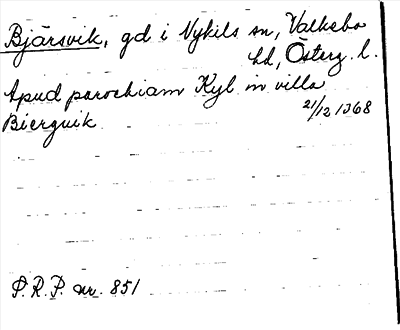 Bjärsvik, gd i Nykils sn, Valkebo
hd, Österg. l.
Apud parochiam Kyl in villa
Biergwik 21/12 1368
P.R.P. nr. 851